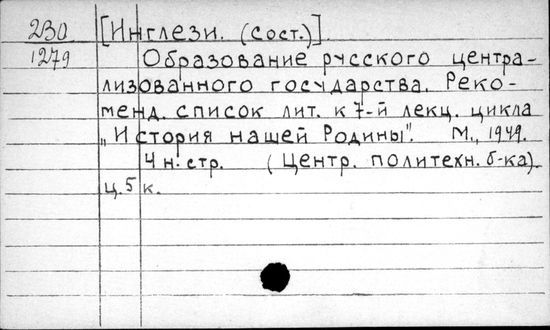 230 [Инглези. (сост.)].
1279 Образование русского центра-
лизованного государства. Реко-
менд. список лит. к 7-й лекц. цикла
„История нашей Родины". М., 1949.
4 н. стр. (Центр. политехн. б-ка)
ц. 5 к.